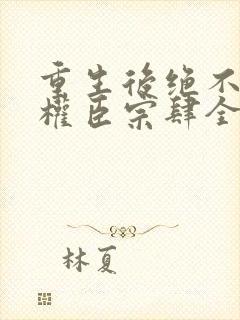 重生後绝不
權臣宗肆全
林夏